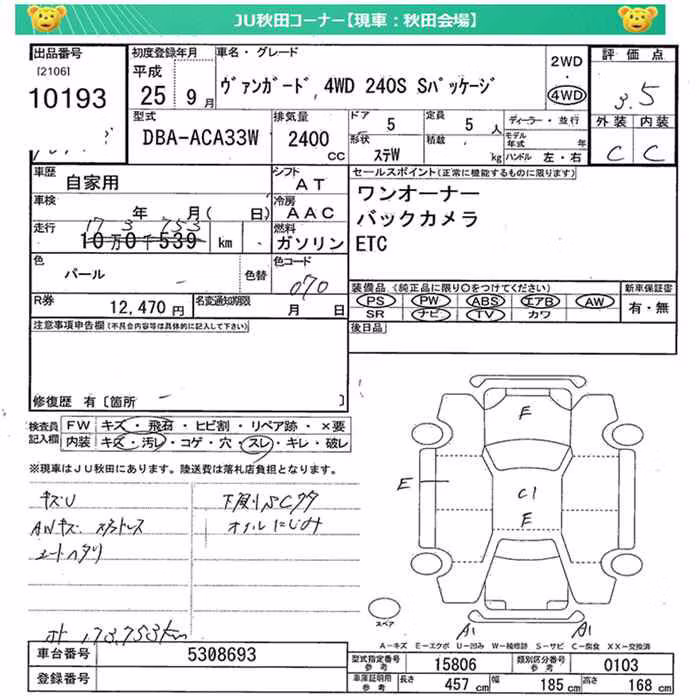 JU秋田コーナー【現車：秋田会場】
出品番号
[2106]
10193
初度登録年月
平成
25 9月
車名・グレード
ヴァンガード 4WD 240S Sパッケージ
2WD
・
4WD
評価点
3.5
外装 内装
C C
型式
DBA-ACA33W
排気量
2400
CC
ドア
5
定員
5人
形状
ステW
積載
kg
ディーラー・並行
モデル年式 年
ハンドル 左・右
車歴
自家用
シフト
AT
車検
年 月( 日)
冷房
AAC
走行
17 3 753
10万0千539 km
燃料
ガソリン
色
パール
色替
色コード
070
R券
12,470円
名変通知期限
月 日
セールスポイント(正常に機能するものに限ります)
ワンオーナー
バックカメラ
ETC
装備品 (純正品に限り○をつけてください)
PS PW ABS エアB AW
SR ナビ TV カワ
新車保証書
有・無
後日品
注意事項申告欄(不具合内容等は具体的に記入して下さい)
修復歴 有〔箇所 〕
検査員記入欄
FW キズ・飛石・ヒビ割・リペア跡・×要
内装 キズ・汚レ・コゲ・穴・スレ・キレ・破レ
※現車はJU秋田にあります。陸送費は落札店負担となります。
キズU
AWキズ スタッドレス
シートヘタリ
下廻りSCサ
オイルにじみ
173,753km
E
E
C1
E
A1 A1
スペア
A－キズ E－エクボ U－凹み W－補修跡 S－サビ C－腐食 XX－交換済
車台番号
5308693
登録番号
型式指定番号 参考
15806
類別区分番号 参考
0103
車庫証明用 参考
長さ 457cm 幅 185cm 高さ 168cm